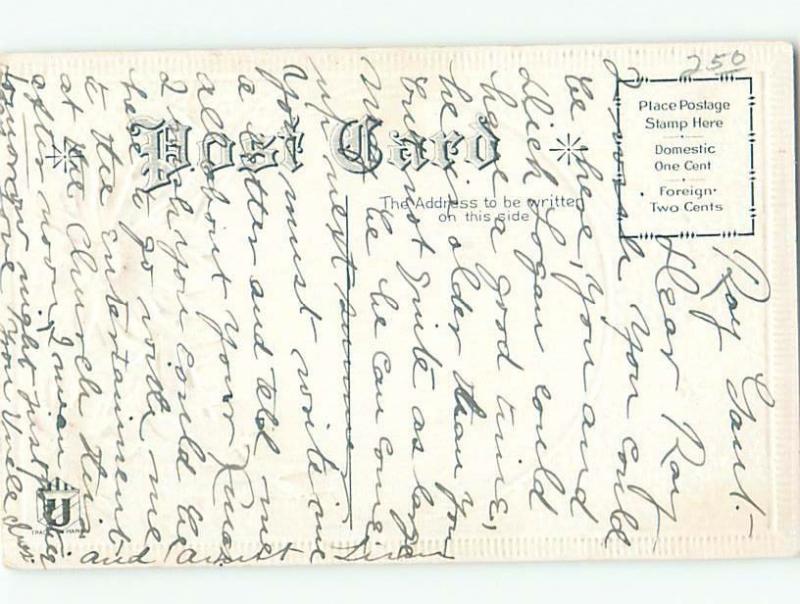 250
Post Card
The Address to be written
on this side
Place Postage
Stamp Here
Domestic
One Cent
Foreign
Two Cents
Roy Gant.-
Dear Roy
I wish you could
be here, you and
Dick Logan could
have a good time,
he is older than you
but not quite as large
May be he can come
up next summer
You must write me
a letter and tell me
all about your Xmas
I wish you could be
here to go with me
to the entertainment
at the Church this
afternoon, I mean
tomorrow night first
love you Uncle
and Aunt
TRADE MARK